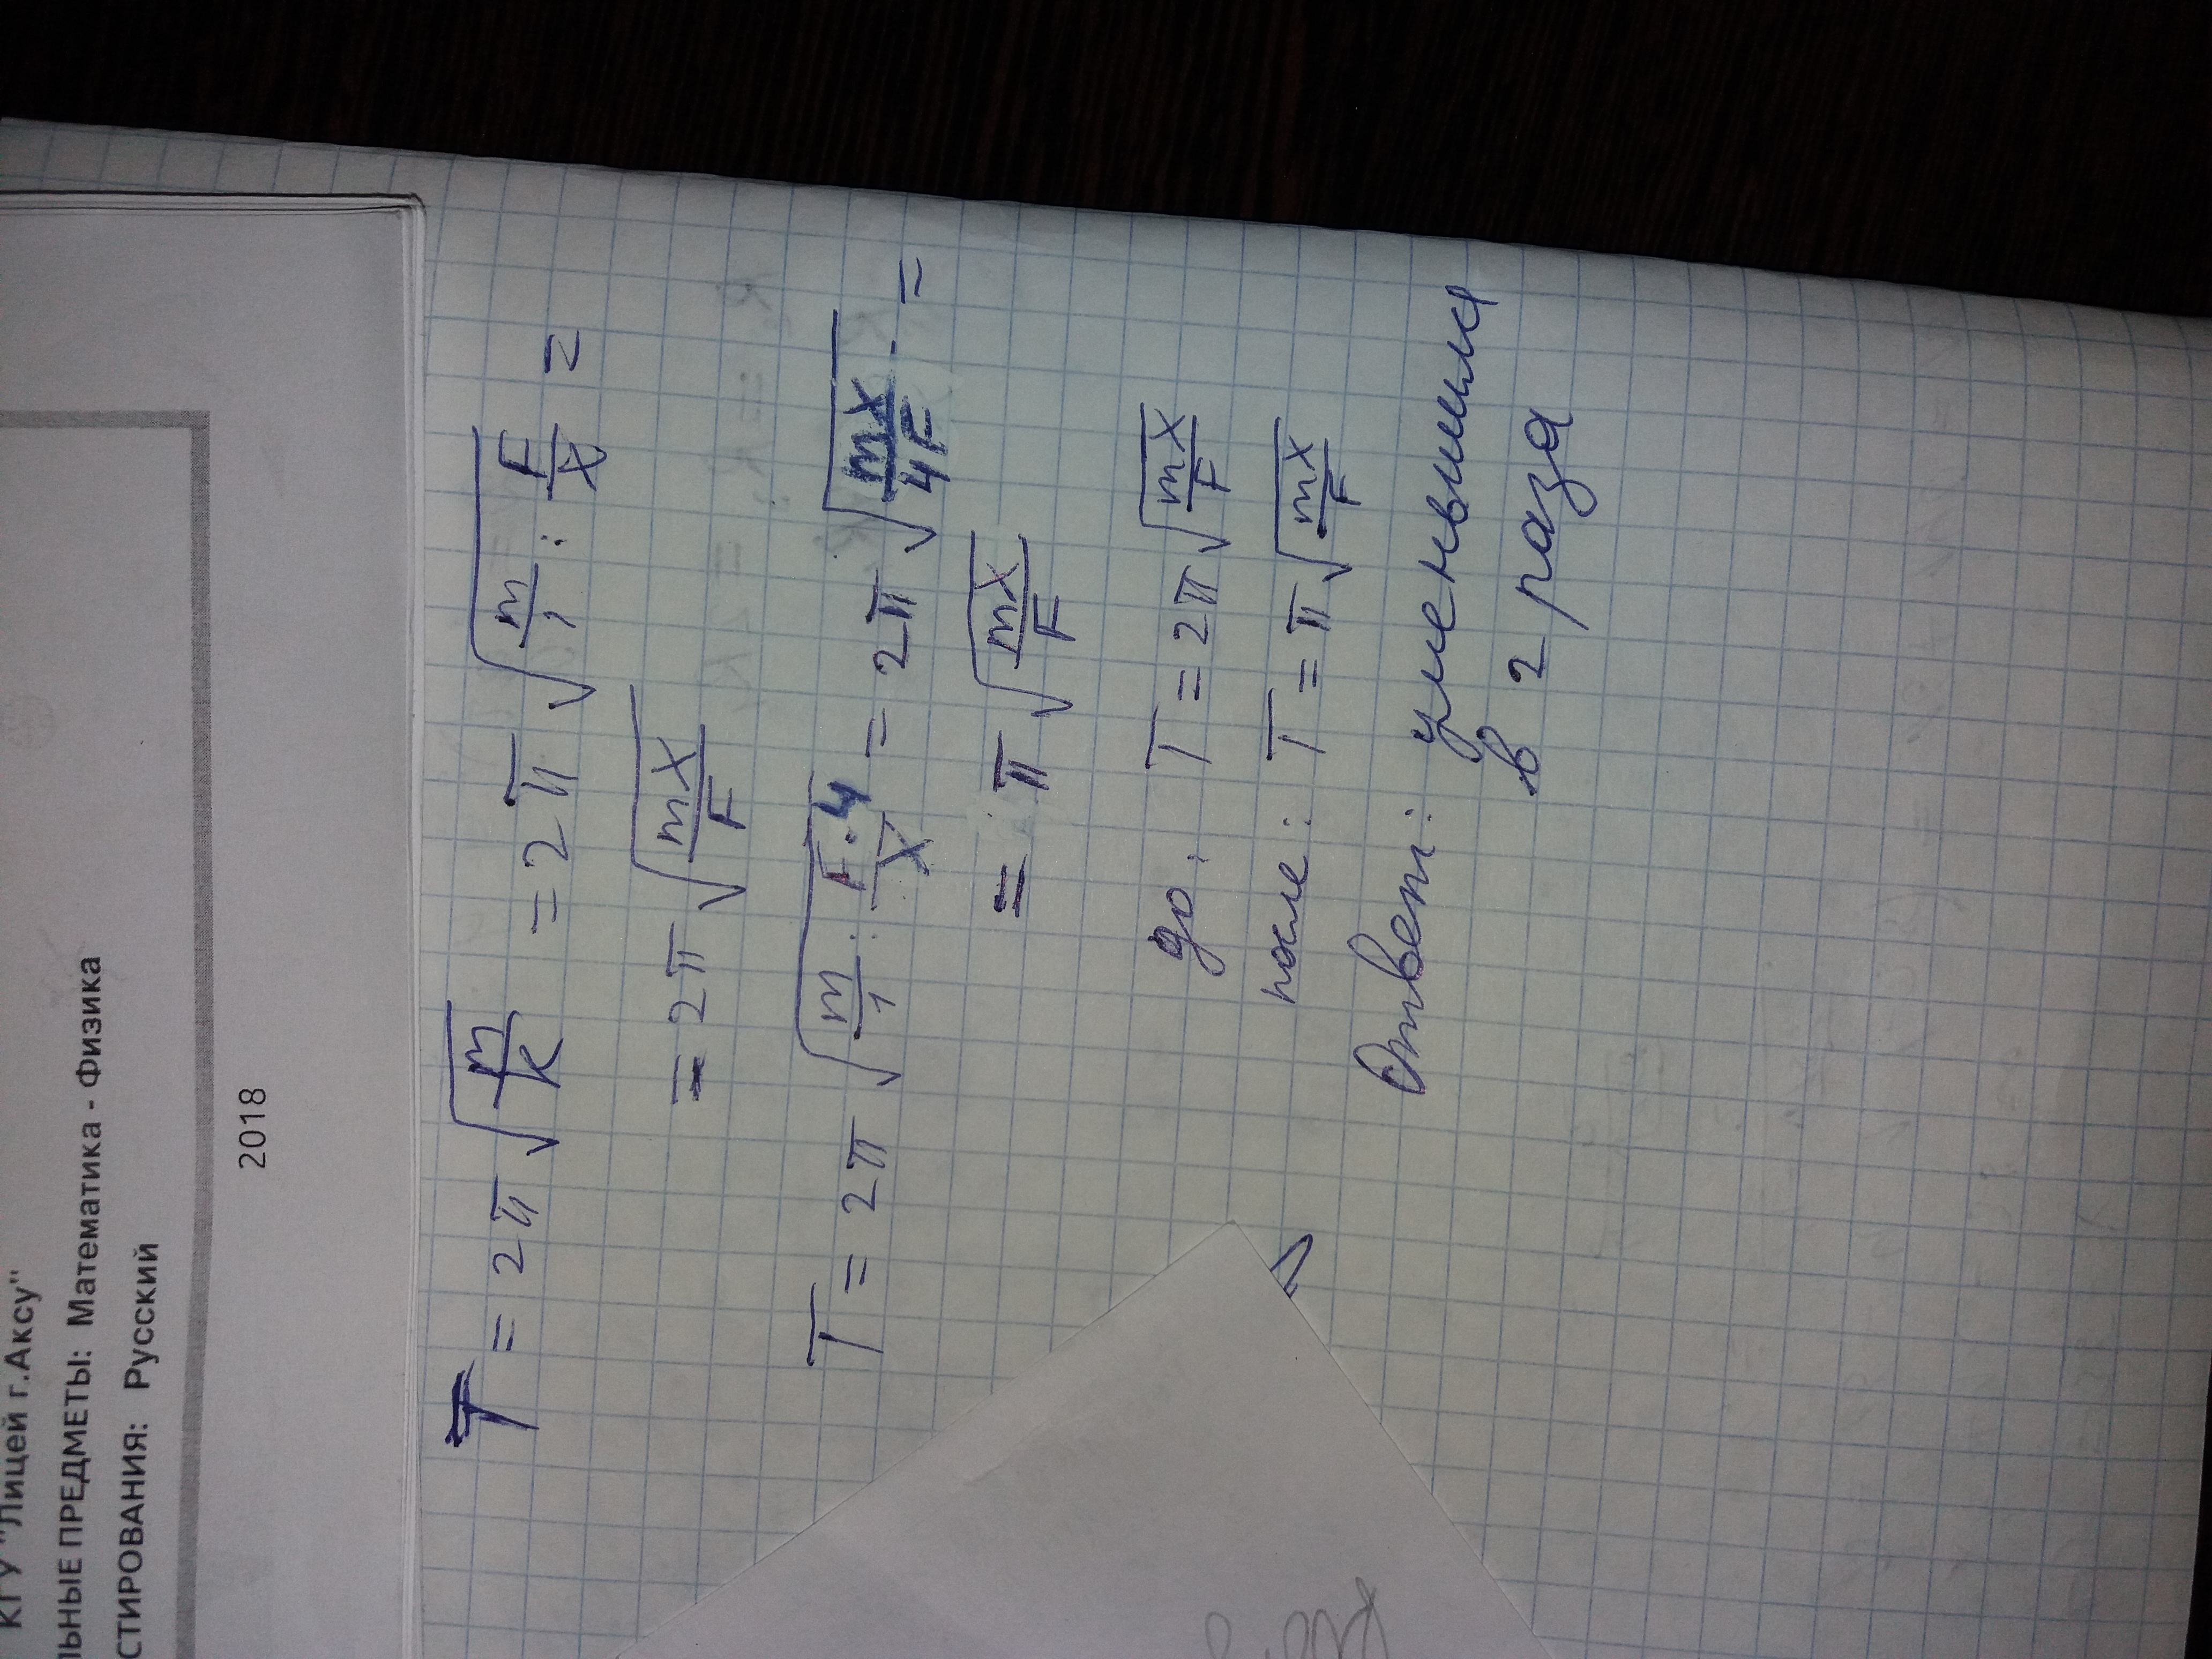 КГУ "Лицей г.Аксу"
ЛЬНЫЕ ПРЕДМЕТЫ: Математика - Физика
СТИРОВАНИЯ: Русский
2018
T = 2π √(m/k) = 2π √(m/1 : F/x) =
= 2π √(mx/F)
T = 2π √(m/1 : F·4/x) = 2π √(mx/4F) =
= π √(mx/F)
до: T = 2π √(mx/F)
после: T = π √(mx/F)
Ответ: уменьшился
в 2 раза